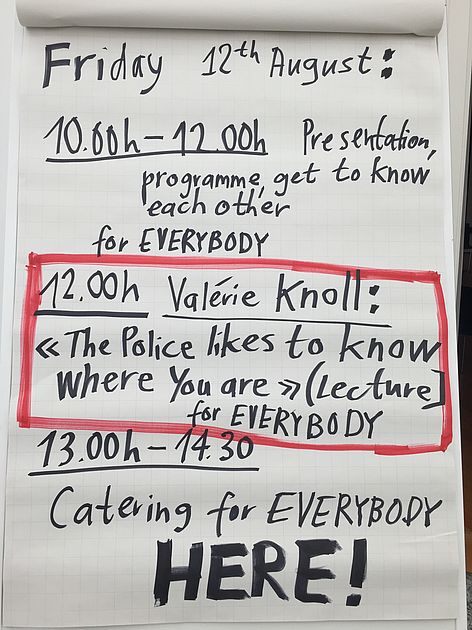 Friday 12th August:
10.00h – 12.00h Presentation,
programme, get to know
each other
for EVERYBODY
12.00h Valérie Knoll:
« The Police likes to know
where You are » (Lecture)
for EVERYBODY
13.00h – 14.30
Catering for EVERYBODY
HERE!